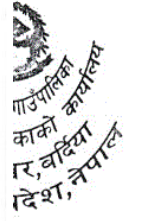 गाउँपालिका
काको कार्यालय
र, बर्दिया
रदेश, नेपाल